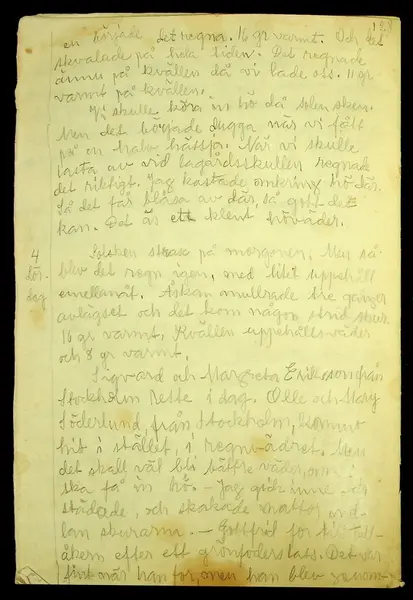 en började det regna. 16 gr varmt. Och det
skvalade på hela tiden. Det regnade
ännu på kvällen då vi lade oss. 11 gr
varmt på kvällen.
Vi skulle köra in hö då solen sken.
Men det började dugga när vi fått
på en halv hässja. När vi skulle
lasta av vid lagårdsskullen regnade
det riktigt. Jag kastade omkring hö där.
Så det får blåsa av där, så gott det
kan. Det är ett klent höväder.
4 Solsken straxt på morgonen. Men så
tors- blev det regn igen, med litet uppehåll
dag emellanåt. Åskan mullrade tre gånger
avlägset och det kom någon strid skur.
16 gr varmt. Kvällen uppehållsväder
och 8 gr varmt.
Sigvard och Margreta Eriksson från
Stockholm reste i dag. Olle och Mary
Söderlund, från Stockholm, kommit
hit i stället, i regnvädret. Men
det skall väl bli bättre väder, om vi
ska få in hö. - Jag gick inne och
städade, och skakade mattor mel-
lan skurarna. - Gottfrid for till
åkern efter ett grönfoderslass. Det var
fint när han for, men han blev genom-